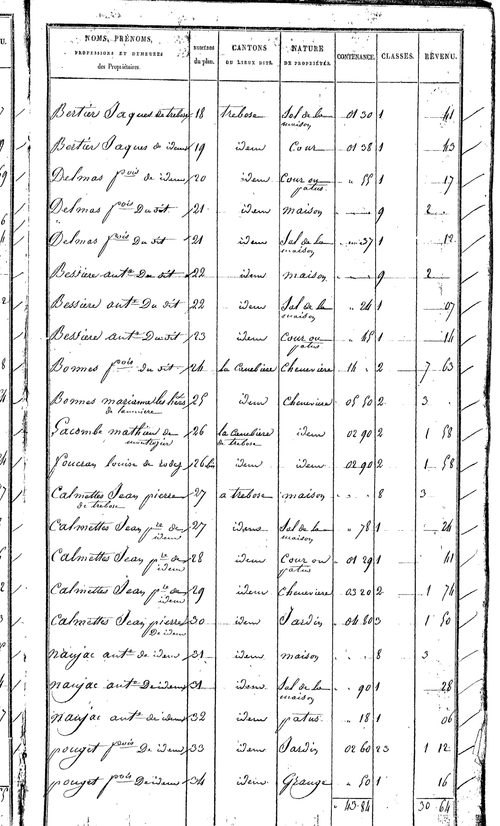 NOMS, PRÉNOMS, PROFESSIONS ET DEMEURES des Propriétaires. | NUMÉROS du plan. | CANTONS OU LIEUX DITS. | NATURE DE PROPRIÉTÉS. | CONTENANCE. | CLASSES. | REVENU.
Bertier Jaques de trebose 18 trebose Sol de la maison 01 30 1 41
Bertier Jaques de idem 19 idem Cour 01 38 1 43
Delmas pois de idem 20 idem Cour ou patus " 55 1 17
Delmas pois Du dit 21 idem maison 9 2
Delmas pois Du dit 21 idem Sol de la maison 37 1 12
Bessiere ante Du dit 22 idem maison 9 2
Bessiere ante Du dit 22 idem Sol de la maison " 24 1 07
Bessiere ante Du dit 23 idem Cour ou patus " 45 1 14
Bonnes pois du dit 24 la Canebiere Cheneviere 14 . 2 7 63
Bonnes marianne les hérs de 25 idem Cheneviere 05 50 2 3
Lacombe mathieu de 26 la Canebiere de trebose idem 02 90 2 1 58
louise de rodez 26 bis idem idem 02 90 2 1 58
Calmettes Jean pierre de trebose 27 a trebose maison 8 3
Calmettes Jean pre de idem 27 idem Sol de la maison " 78 1 24
Calmettes Jean pre de idem 28 idem Cour ou patus 01 29 1 41
Calmettes Jean pre de idem 29 idem Cheneviere 03 20 2 1 74
Calmettes Jean pierre De idem 30 idem Jardin 04 80 3 1 50
naujac ante de idem 31 idem maison 8 3
naujac ante De idem 31 idem Sol de la maison " 90 1 28
naujac ante de idem 32 idem patus " 18 1 06
pouget pois De idem 33 idem Jardin 02 60 23 1 12
pouget pois De idem 34 idem Grange " 50 1 16
" 43 84 30 64